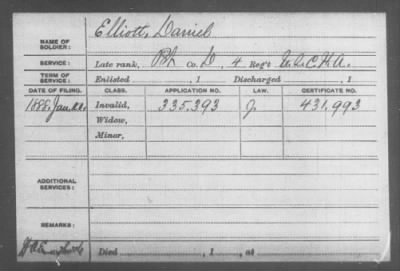 Elliott, Daniel
NAME OF SOLDIER:
SERVICE: Late rank, Co. D, 4 Reg't U.S.C.H.A.
TERM OF SERVICE: Enlisted , 1 Discharged , 1
DATE OF FILING. CLASS. APPLICATION NO. LAW. CERTIFICATE NO.
Jan. Invalid, 335.393 431,993
Widow,
Minor,
ADDITIONAL SERVICES:
REMARKS:
Died , 1 , at